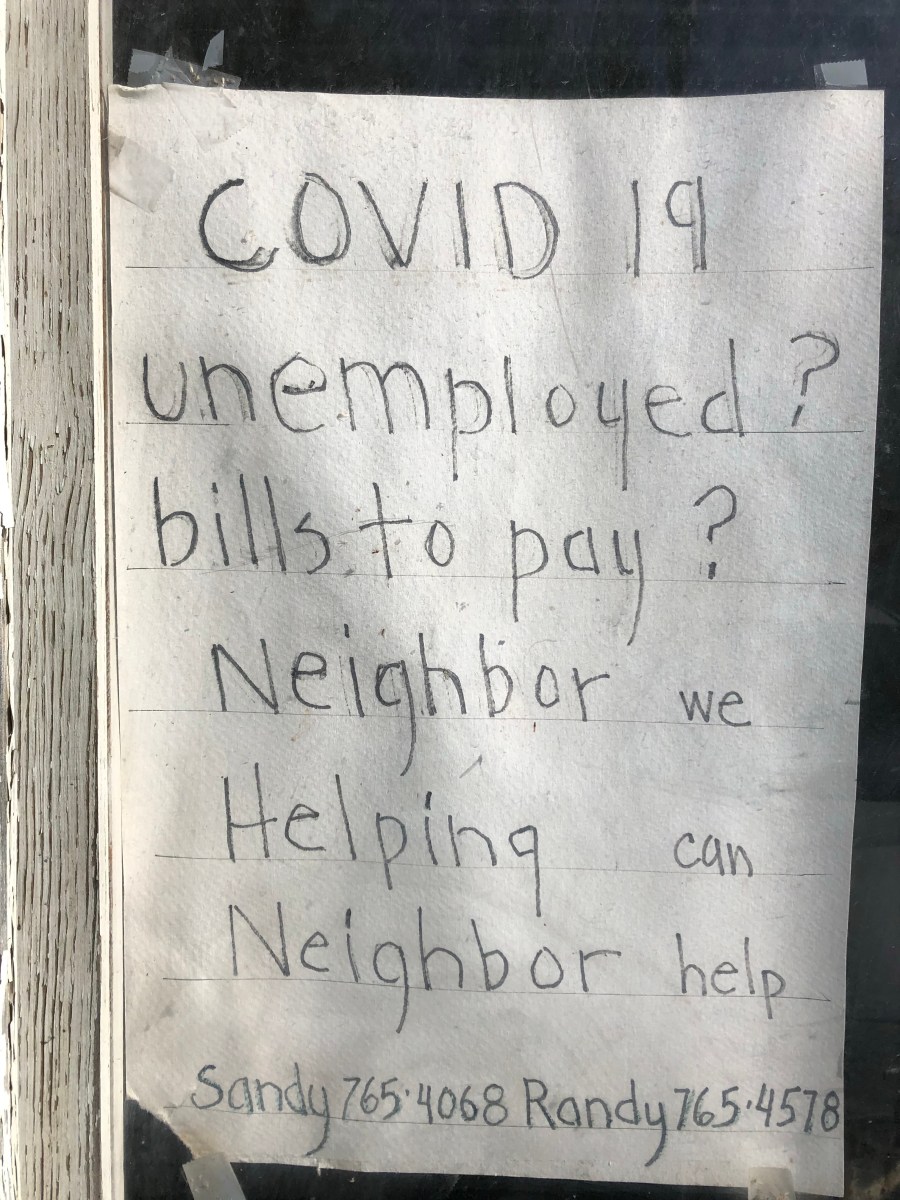 COVID 19
unemployed?
bills to pay?
Neighbor we
Helping can
Neighbor help
Sandy 765·4068 Randy 765·4578